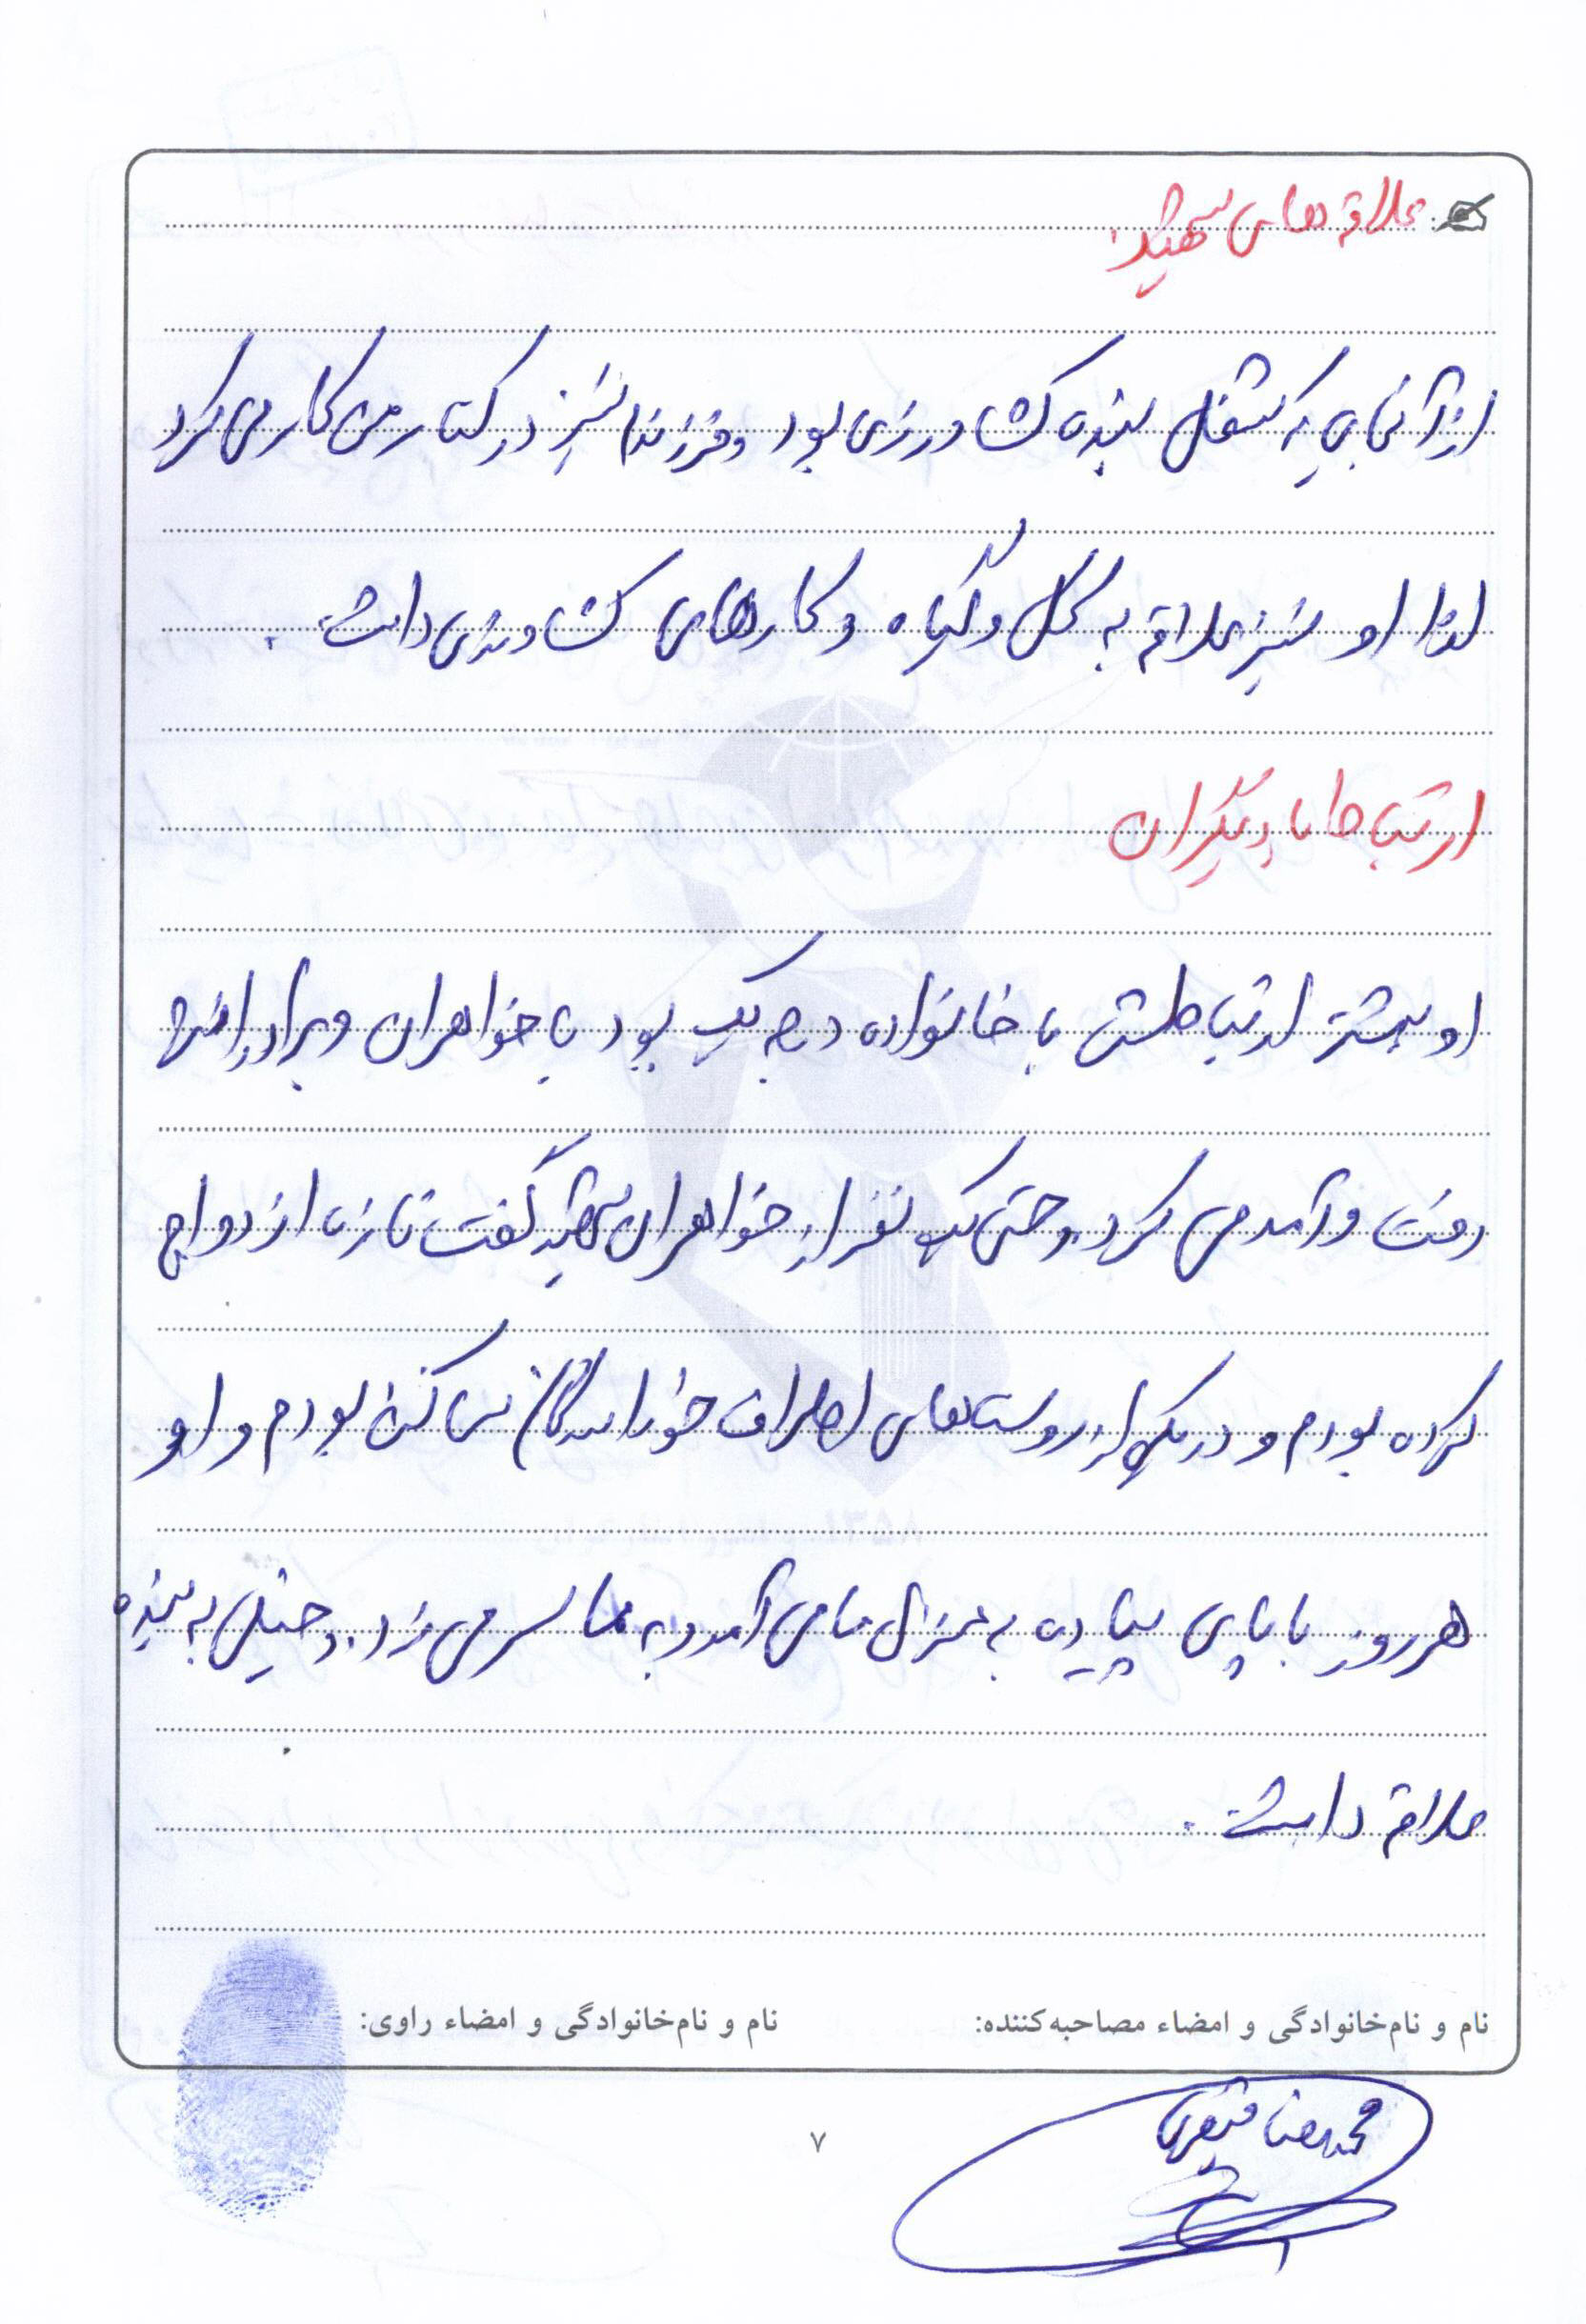 علاقه های شهید:
از آنجایی که شغل بنده کشاورزی بود و فرزندم نیز در کنار من کار می کرد
لذا او نیز علاقه به گل و گیاه و کارهای کشاورزی داشت.
ارتباط با دیگران
او بیشتر ارتباطش با خانواده درجه یک بود با خواهران و برادرانش
رفت و آمد می کرد و حتی یک نفر از خواهران شهید گفت تازه ازدواج
کرده بودم و در یکی از روستاهای اطراف ساکن بودم و او
هر روز با پای پیاده به منزل ما می آمد و به ما سر می زد. و خیلی به بنده
علاقه داشت.
نام و نام‌خانوادگی و امضاء مصاحبه‌کننده: نام و نام‌خانوادگی و امضاء راوی:
محمدرضا
۷